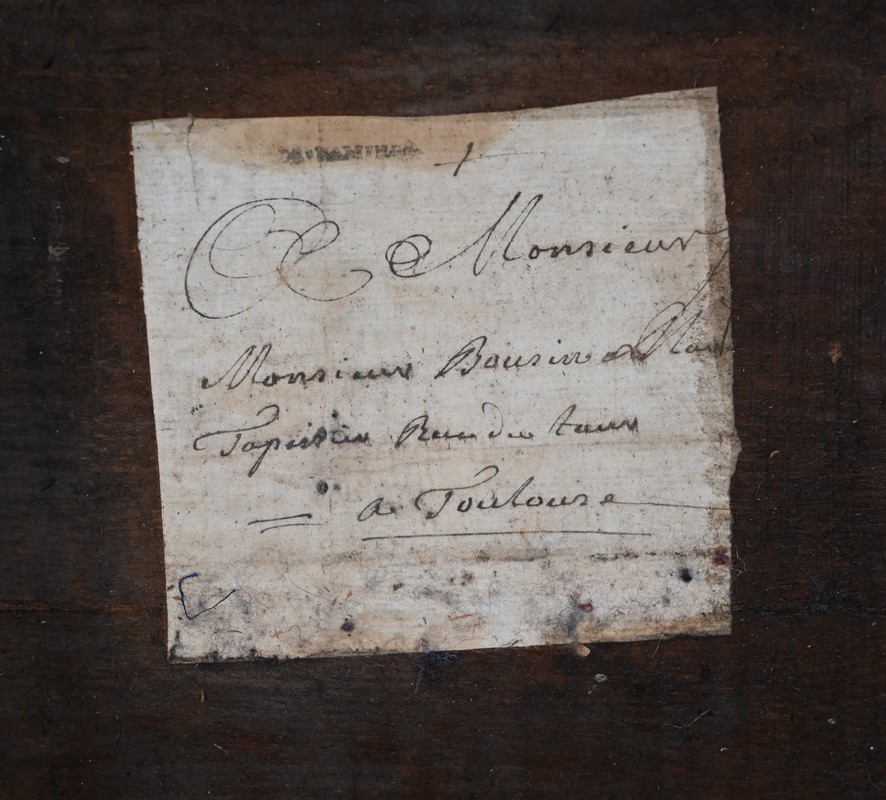 A Monsieur
Monsieur Bousin
Tapissier Rue du taur
a Toulouse